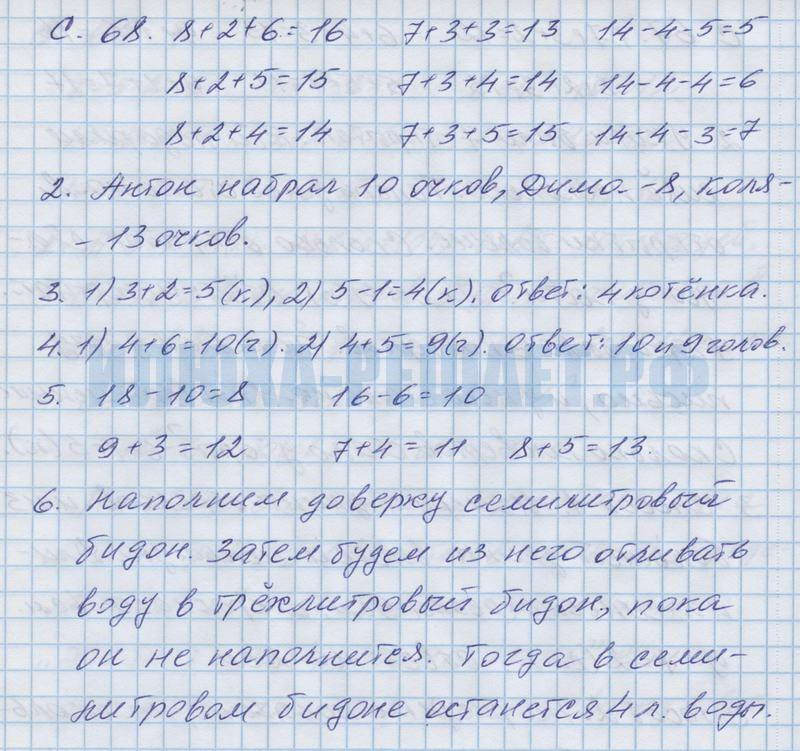 С. 68. 8+2+6=16 7+3+3=13 14-4-5=5
8+2+5=15 7+3+4=14 14-4-4=6
8+2+4=14 7+3+5=15 14-4-3=7
2. Антон набрал 10 очков, Дима -8, Коля-
- 13 очков.
3. 1) 3+2=5(к), 2) 5-1=4(к). ответ: 4 котёнка.
4. 1) 4+6=10(г). 2) 4+5=9(г). ответ: 10 и 9 голов.
ИЛЮХА-РЕШАЕТ.РФ
5. 18-10=8 16-6=10
9+3=12 7+4=11 8+5=13.
6. Наполним доверху семилитровый
бидон. Затем будем из него отливать
воду в трёхлитровый бидон, пока
он не наполнится. Тогда в семи-
литровом бидоне останется 4 л. воды.